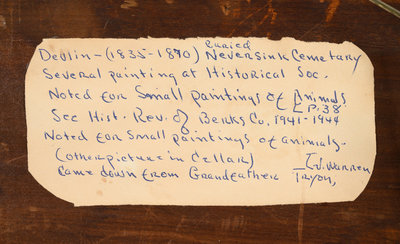 Devlin - (1835-1870) buried Neversink Cemetary
Several painting at Historical Soc.
Noted for Small paintings of Animals
See Hist. Rev. of Berks Co. 1941-1944 P.38
Noted for small paintings of animals.
(other picture in Cellar) I.J. Warren
Came down from Grandfather Tryon,